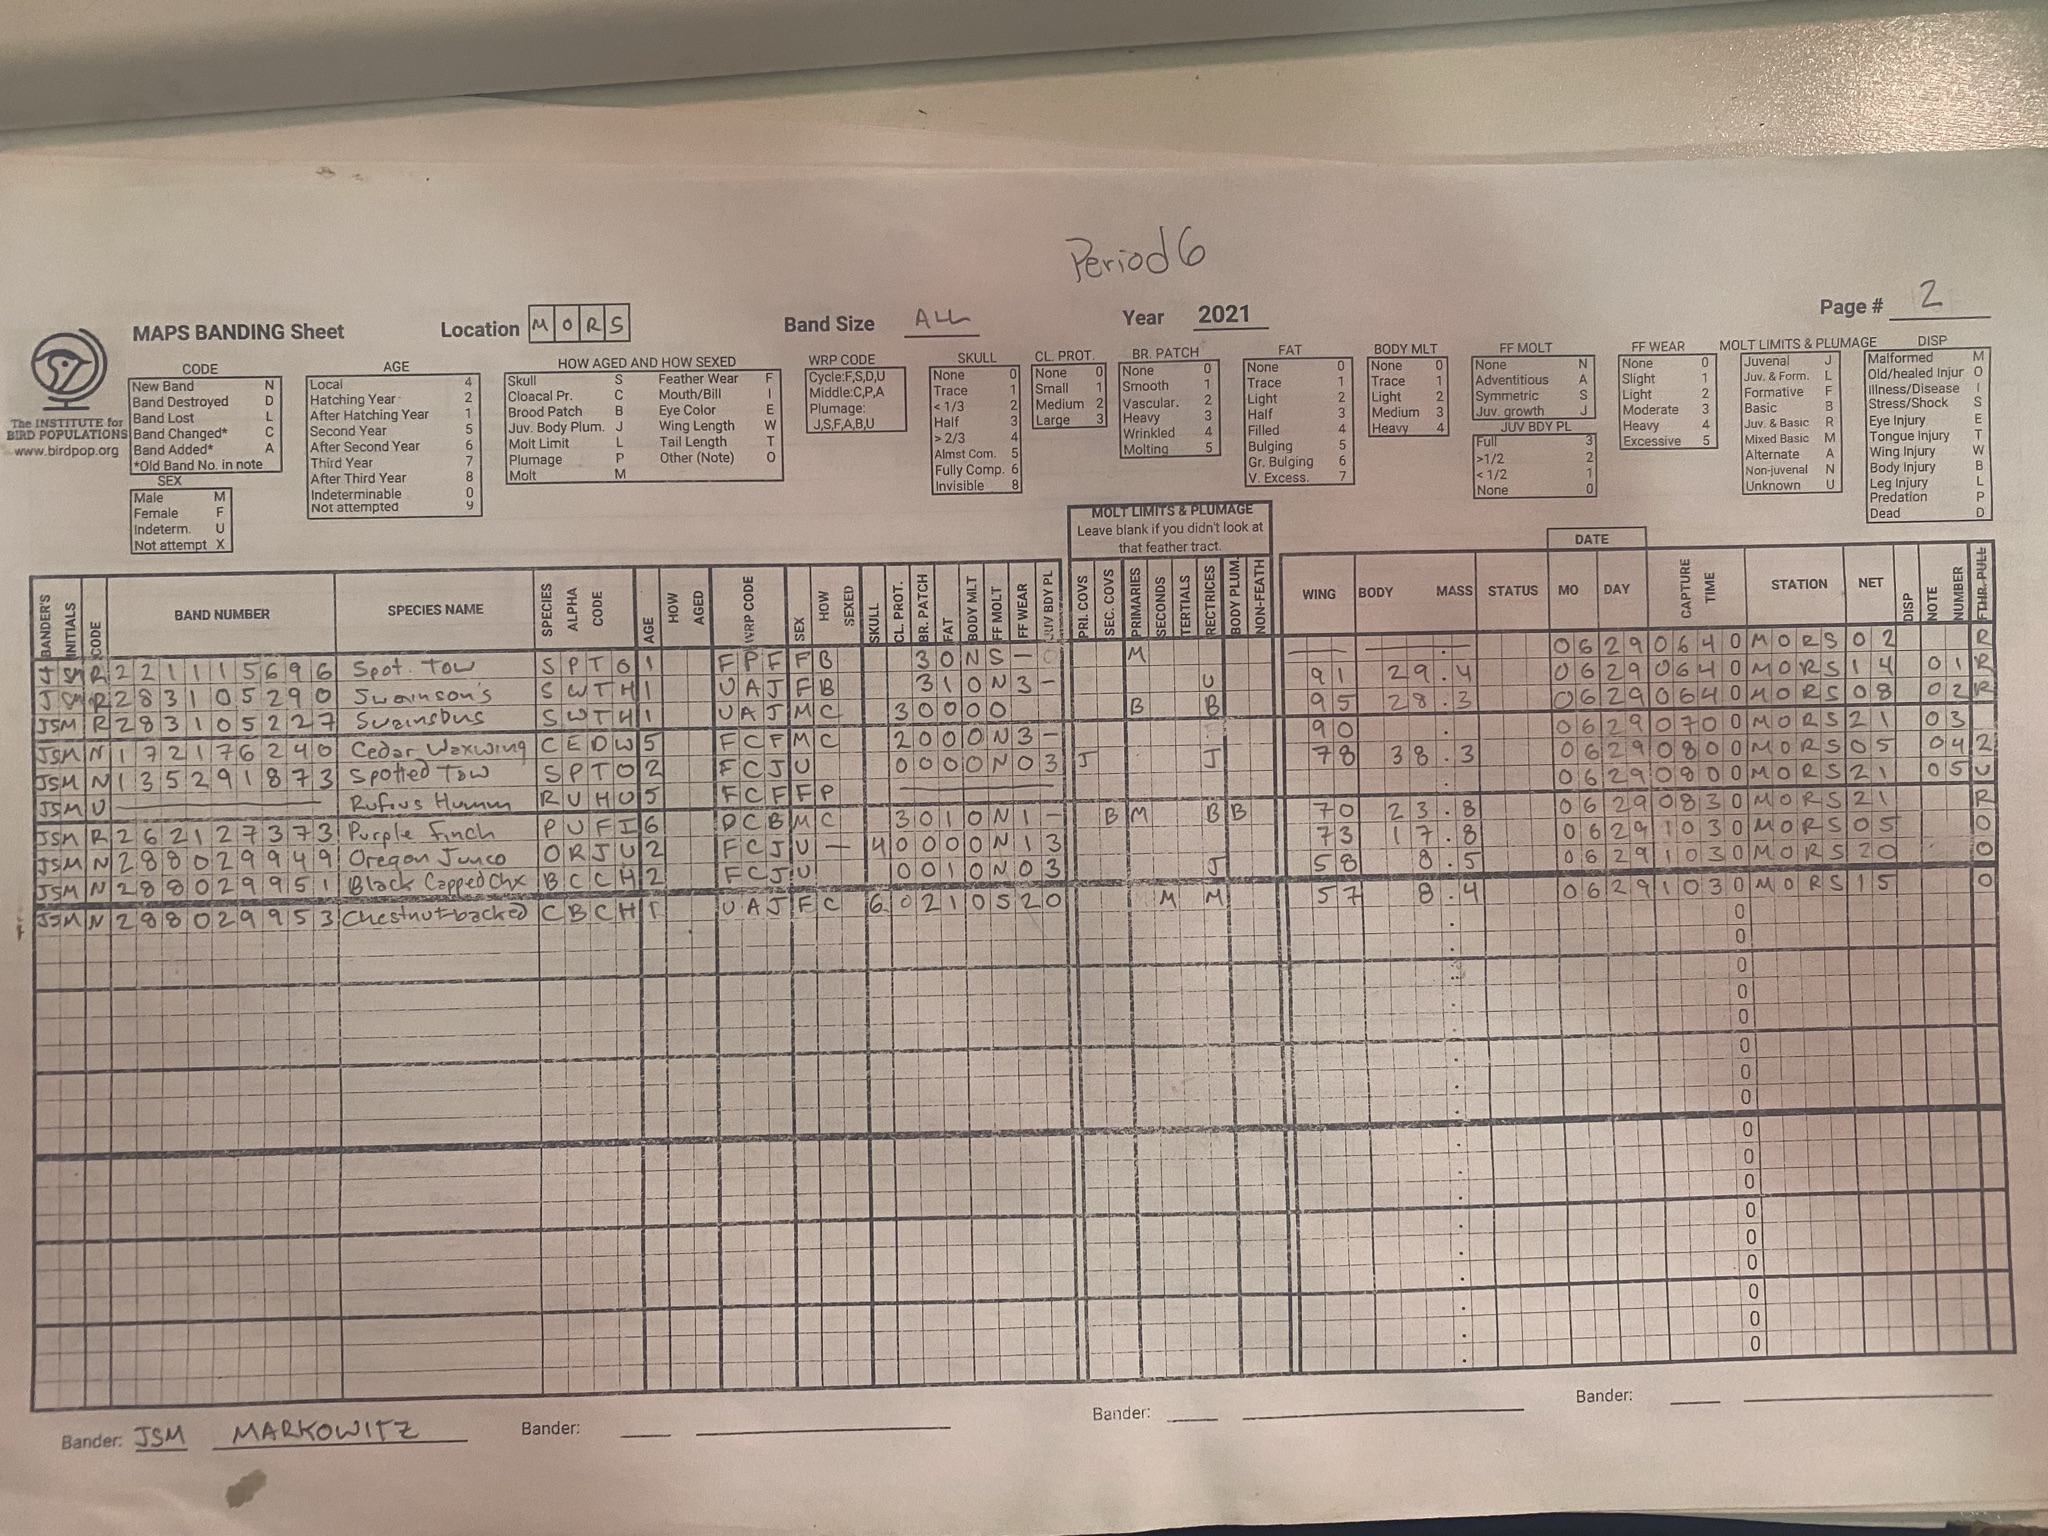 Period 6
MAPS BANDING Sheet Location M O R S Band Size ALL Year 2021 Page # 2
The INSTITUTE for
BIRD POPULATIONS
www.birdpop.org
CODE
New Band N
Band Destroyed D
Band Lost L
Band Changed* C
Band Added* A
*Old Band No. in note
SEX
Male M
Female F
Indeterm. U
Not attempt X
AGE
Local 4
Hatching Year 2
After Hatching Year 1
Second Year 5
After Second Year 6
Third Year 7
After Third Year 8
Indeterminable 0
Not attempted 9
HOW AGED AND HOW SEXED
Skull S Feather Wear F
Cloacal Pr. C Mouth/Bill I
Brood Patch B Eye Color E
Juv. Body Plum. J Wing Length W
Molt Limit L Tail Length T
Plumage P Other (Note) O
Molt M
WRP CODE
Cycle:F,S,D,U
Middle:C,P,A
Plumage:
J,S,F,A,B,U
SKULL
None 0
Trace 1
< 1/3 2
Half 3
> 2/3 4
Almst Com. 5
Fully Comp. 6
Invisible 8
CL. PROT.
None 0
Small 1
Medium 2
Large 3
BR. PATCH
None 0
Smooth 1
Vascular. 2
Heavy 3
Wrinkled 4
Molting 5
FAT
None 0
Trace 1
Light 2
Half 3
Filled 4
Bulging 5
Gr. Bulging 6
V. Excess. 7
BODY MLT
None 0
Trace 1
Light 2
Medium 3
Heavy 4
FF MOLT
None N
Adventitious A
Symmetric S
Juv. growth J
JUV BDY PL
Full 3
>1/2 2
< 1/2 1
None 0
FF WEAR
None 0
Slight 1
Light 2
Moderate 3
Heavy 4
Excessive 5
MOLT LIMITS & PLUMAGE
Juvenal J
Juv. & Form. L
Formative F
Basic B
Juv. & Basic R
Mixed Basic M
Alternate A
Non-juvenal N
Unknown U
DISP
Malformed M
Old/healed Injur O
Illness/Disease I
Stress/Shock S
Eye Injury E
Tongue Injury T
Wing Injury W
Body Injury B
Leg Injury L
Predation P
Dead D
MOLT LIMITS & PLUMAGE
Leave blank if you didn't look at
that feather tract.
DATE
BANDER'S INITIALS CODE BAND NUMBER SPECIES NAME SPECIES ALPHA CODE AGE HOW AGED WRP CODE SEX HOW SEXED SKULL CL. PROT. BR. PATCH FAT BODY MLT FF MOLT FF WEAR JUV BDY PL PRI. COVS SEC. COVS PRIMARIES SECONDS TERTIALS RECTRICES BODY PLUM. NON-FEATH WING BODY MASS STATUS MO DAY CAPTURE TIME STATION NET DISP NOTE NUMBER FTHR. PULL
JSM R 221115696 Spot. Tow SPTO 1 FPF F B 3 0 N S - M - . 06 29 0640 MORS 02 R
JSM R 283105290 Swainson's SWTH 1 UAJ F B 3 1 0 N 3 - U 91 29.4 06 29 0640 MORS 14 01 R
JSM R 283105227 Swainsons SWTH 1 UAJ M C 3 0 0 0 0 B B 95 28.3 06 29 0640 MORS 08 02 R
JSM N 172176240 Cedar Waxwing CEDW 5 FCF M C 2 0 0 0 N 3 - 90 . 06 29 0700 MORS 21 03
JSM N 135291873 Spotted Tow SPTO 2 FCJ U 0 0 0 0 N 0 3 J J 78 38.3 06 29 0800 MORS 05 04 2
JSM U Rufius Humm RUHU 5 FCF F P . 06 29 0800 MORS 21 05 U
JSM R 262127373 Purple Finch PUFI 6 DCB M C 3 0 1 0 N 1 - B M B B 70 23.8 06 29 0830 MORS 21 R
JSM N 288029949 Oregon Junco ORJU 2 FCJ U - 4 0 0 0 0 N 1 3 73 17.8 06 29 1030 MORS 05 O
JSM N 288029951 Black Capped Chx BCCH 2 FCJ U 0 0 1 0 N 0 3 J 58 8.5 06 29 1030 MORS 20 O
JSM N 288029953 Chestnut-backed CBCH 1 UAJ F C 6 0 2 1 0 S 2 0 M M 57 8.4 06 29 1030 MORS 15 O
0
0
0
0
0
0
0
0
0
0
0
0
0
0
0
0
0
Bander: JSM MARKOWITZ Bander: Bander: Bander: